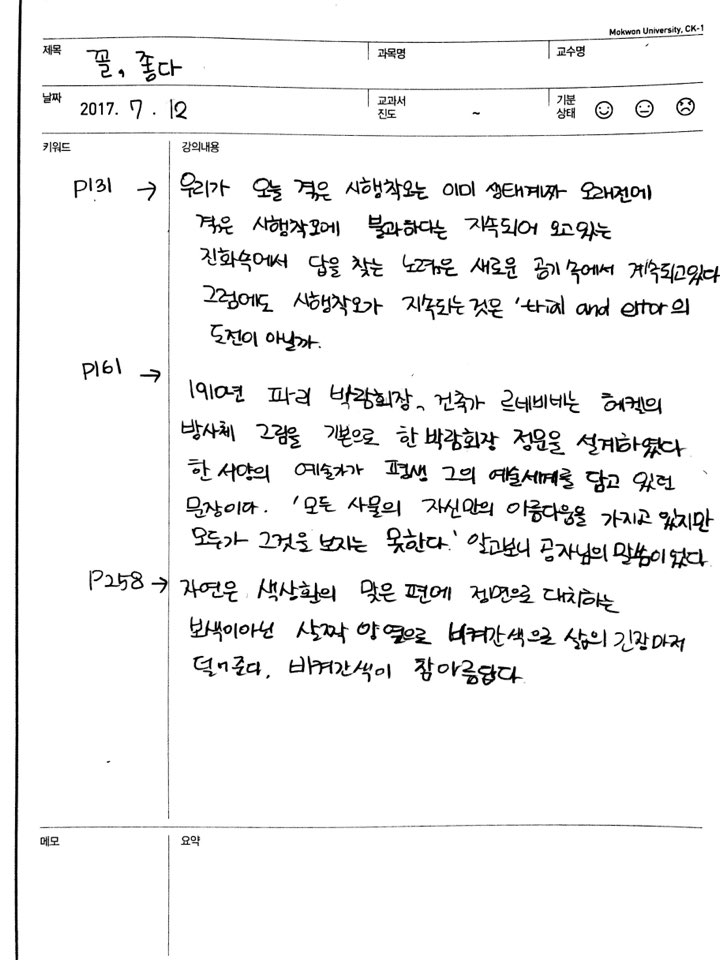 Mokwon University, CK-1
제목 꼴, 좋다 과목명 교수명
날짜 2017. 7. 12 교과서 진도 ~ 기분 상태
키워드 강의내용
P131 → 우리가 오늘 겪은 시행착오는 이미 생태계가 오래전에
겪은 시행착오에 불과하다는 지속되어 오고있는
진화속에서 답을 찾는 노력은 새로운 공기속에서 계속되고있다
그럼에도 시행착오가 지속되는 것은 'trial and error의
도전이 아닐까.
P161 → 1910년 파리 박람회장, 건축가 르네비네는 헤켈의
방사체 그림을 기본으로 한 박람회장 정문을 설계하였다
한 서양의 예술가가 평생 그의 예술세계를 담고 있던
문장이다. '모든 사물의 자신만의 아름다움을 가지고 있지만
모두가 그것을 보지는 못한다.' 알고보니 공자님의 말씀이었다
P258 → 자연은 색상환의 맞은 편에 정면으로 대치하는
보색이아닌 살짝 양 옆으로 비켜간색으로 삶의 긴장마저
덜어준다. 비켜간색이 참아름답다
메모 요약